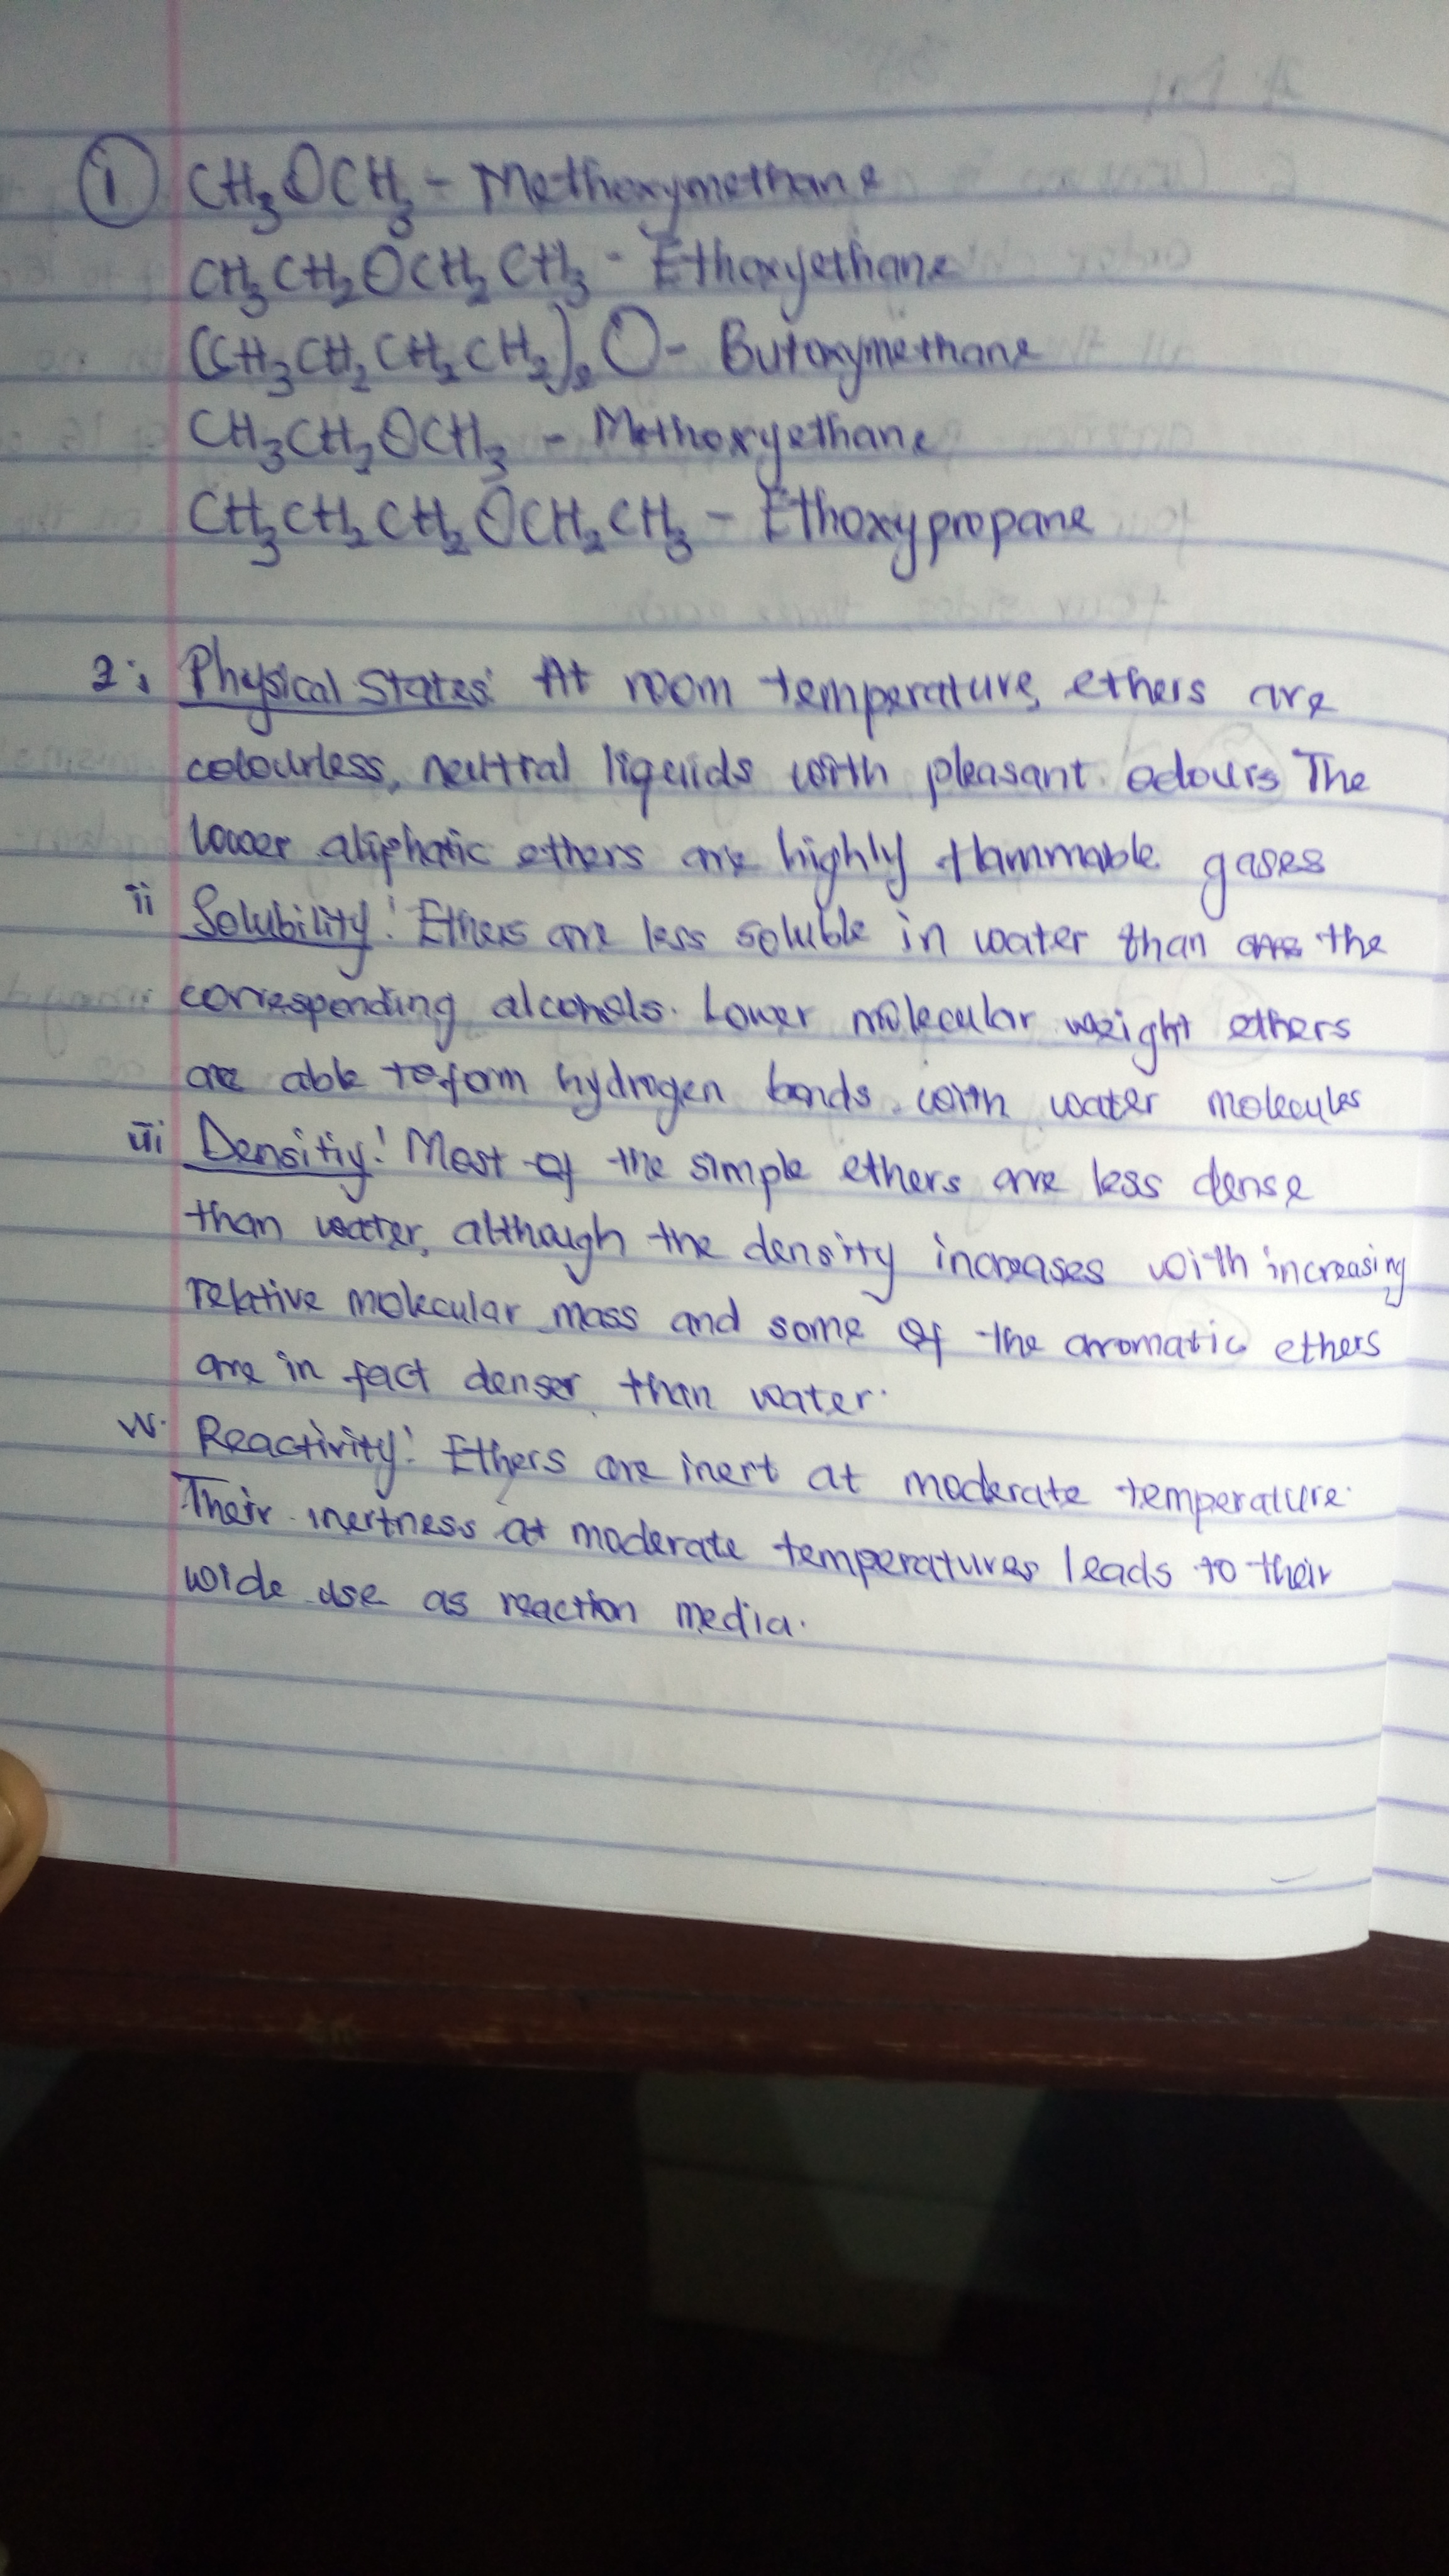 ① CH₃OCH₃ - Methoxymethane
CH₃CH₂OCH₂CH₃ - Ethoxyethane
(CH₃CH₂CH₂CH₂)₂O - Butoxymethane
CH₃CH₂OCH₃ - Methoxyethane
CH₃CH₂CH₂OCH₂CH₃ - Ethoxypropane
2i, Physical States: At room temperature, ethers are
colourless, neutral liquids with pleasant odours The
lower aliphatic ethers are highly flammable gases
ii Solubility: Ethers are less soluble in water than are the
corresponding alcohols. Lower molecular weight ethers
are able to form hydrogen bonds with water molecules
iii Densitiy: Most of the simple ethers are less dense
than water, although the density increases with increasing
relative molecular mass and some of the aromatic ethers
are in fact denser than water.
iv. Reactivity: Ethers are inert at moderate temperature.
Their inertness at moderate temperatures leads to their
wide use as reaction media.